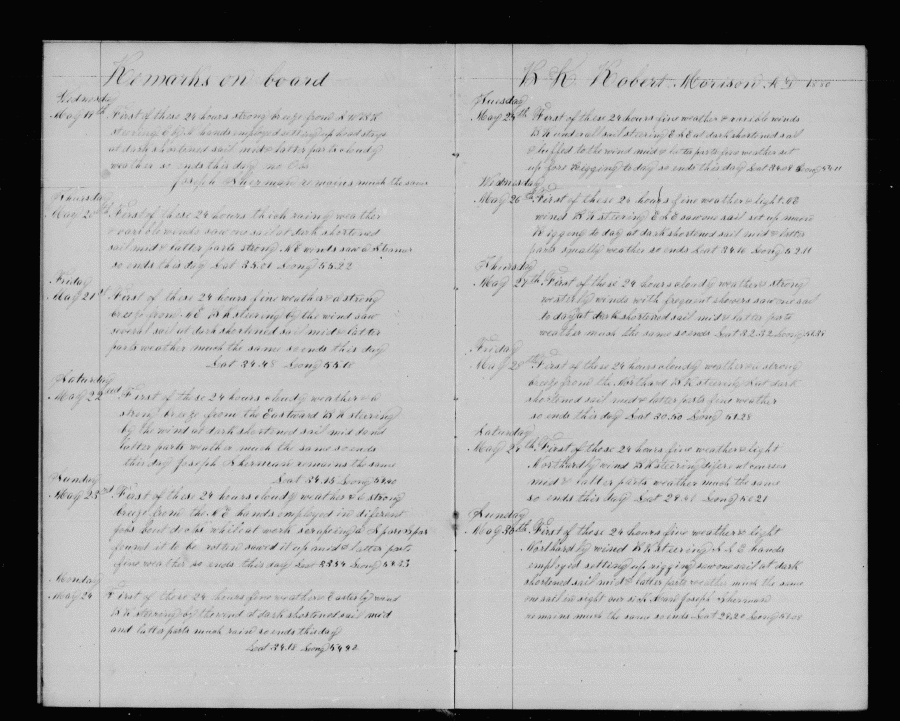 Remarks on board
Wednesday
May 19th First of these 24 hours strong breeze from
steering hands employed setting up head stays
at dark shortened sail mid & latter parts cloudy
weather so ends this day no Obs
Joseph Sherman remains much the same
Thursday
May 20th First of these 24 hours thick rainy weather
& varible winds saw one sail at dark shortened
sail mid & latter parts strong NE winds saw a Steamer
so ends this day Lat 35.01 Long 55.22
Friday
May 21st First of these 24 hours fine weather & strong
breeze from NE Bk steering by the wind saw
several sail at dark shortened sail mid & latter
parts weather much the same so ends this day
Lat 34.48 Long 55.18
Saturday
May 22nd First of these 24 hours cloudy weather & a
strong breeze from the Eastward Bk steering
by the wind at dark shortened sail mid and
latter parts weather much the same so ends
this day Joseph Sherman remains the same
Lat 34.15 Long
Sunday
May 23rd First of these 24 hours cloudy weather & strong
breeze from the NE hands employed in diferent
jobs bout decks whilst at work scrapeing a Spare Spar
found it to be rotten sawd it up mid & latter parts
fine weather so ends this day Lat Long
Monday
May 24 First of these 24 hours fine weather & Easterly wind
Bk steering by the wind at dark shortened sail mid
and latter parts much rain so ends this day
Lat 34.18 Long 54.42
Bk Robert Morison 1880
Tuesday
May 25th First of these 24 hours fine weather & varible winds
Bk und all sail steering ESE at dark shortened sail
& luffed to the wind mid & latter parts fine weather set
up fore Rigging to day so ends this day Lat 34.08 Long
Wednesday
May 26th First of these 24 hours fine weather & light
winds Bk steering ESE saw one sail set up main
Rigging to day at dark shortened sail mid & latter
parts squally weather so ends Lat 34.10 Long 52.11
Thursday
May 27th First of these 24 hours cloudy weather & strong
westerly winds with frequent showers saw one sail
to day at dark shortened sail mid & latter parts
weather much the same so ends Lat 32.32 Long
Friday
May 28th First of these 24 hours cloudy weather & a strong
breeze from the Northard Bk steering at dark
shortened sail mid & latter parts fine weather
so ends this day Lat 30.50 Long 51.28
Saturday
May 29th First of these 24 hours fine weather & light
Northardly wind Bk steering diferent courses
mid & latter parts weather much the same
so ends this day Lat Long
Sunday
May 30th First of these 24 hours fine weather & light
Northardly wind Bk steering hands
employed setting up rigging saw one sail at dark
shortened sail mid & latter parts weather much the same
one sail in sight our sick Man Joseph Sherman
remains much the same so ends Lat 28.20 Long